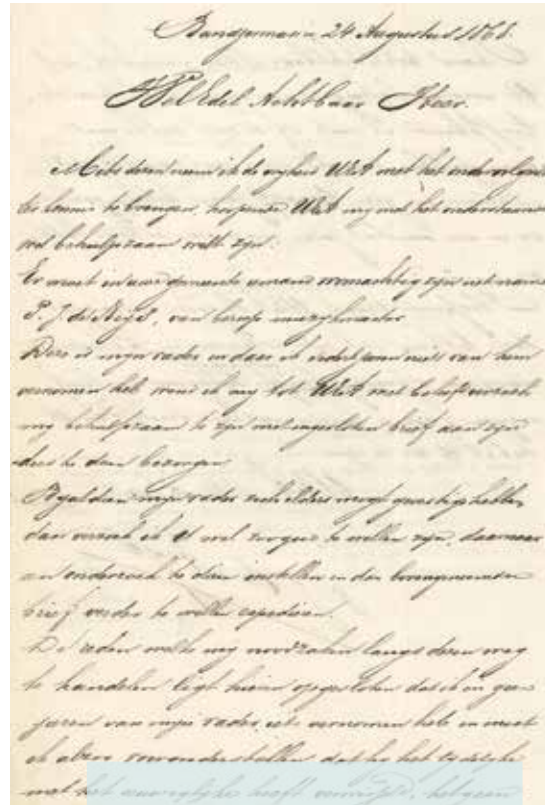 Bandjermasin 24 Augustus 1868.
WelEdel Achtbaar Heer.
Mits dezen neem ik de vryheid UEA met het ondervolgende
ter kennis te brengen, hoopende UEA my met het onderstaande
wel behulpzaam wilt zyn.
Er moet in uwe gemeente iemand woonachtig zyn met name
P. J. de , van beroep muzykmeester
Deze is myn vader en daar ik sedert jaren niets van hem
vernomen heb wend ik my tot UEA met beleefd verzoek
my behulpzaam te zyn met ingesloten brief aan zyn
adres te doen bezorgen.
Byaldien myn vader zich elders mogt gevestigd hebben,
dan verzoek ik U wel zoo goed te willen zyn, daarnaar
een onderzoek te doen instellen en den bovengenoemden
brief verder te willen expedieren.
De reden welke my noodzaken langs dezen weg
te handelen ligt hierin opgesloten dat ik in geen
jaren van myn vader iets vernomen heb en moet
ik alzoo veronderstellen dat hy het tydelyke
met het eeuwige heeft verwisseld, hetgeen